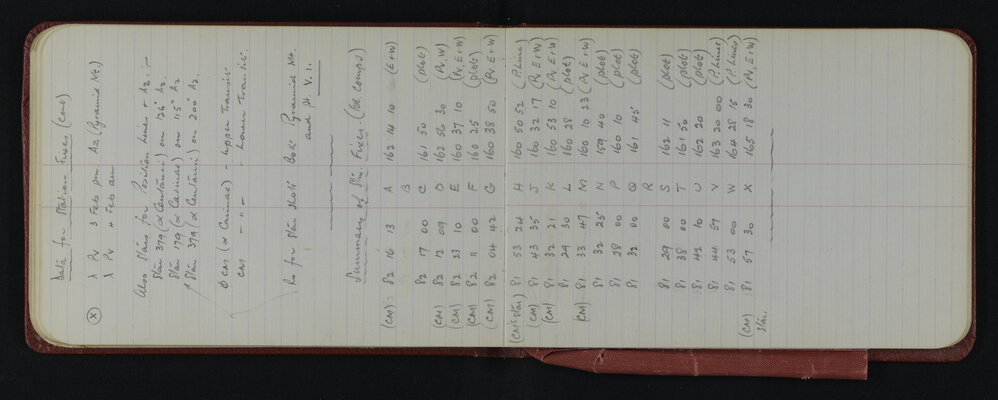 Data for Station Fixes (cont)
(X) λ Pv 3 Feb pm. Az (Pyramid Nt.)
λ Pv 4 Feb am
Also Stars for Position Lines + Az. :-
Star 379 (α Centauri) on 126° Az.
Star 179 (α Carinae) on 115° Az
Star 379 (α Centauri) on 200° Az.
φ CM (α Carinae) - Upper Transit
CM - " - - Lower Transit.
Ro for Stn Pyramid Nt.
and pt V.1.
Summary of Stn. Fixes. (comps)
(CM): 82 16 13 A 162 14 10 (E+W)
B
82 17 00 C 161 50 (plot)
(CM) 82 12 09 D 162 56 30 (Pv, W)
(CM) 82 23 10 E 160 37 10 (Pv E+W)
(CM) 82 11 00 F 160 25 (plot)
(CM) 82 04 42 G 160 38 50 (Pv E+W)
(CM Star) 81 53 24 H 160 50 52 (P. Line)
(CM) 81 43 35 J 160 32 17 (Pv E+W)
(CM) 81 32 21 K 160 53 10 (Pv, E+W)
81 29 30 L 160 28 (plot)
(CM) 81 33 47 M 160 10 23 (Pv E+W)
81 32 25 N 159 40 (plot)
81 28 00 P 160 10 (plot)
81 32 00 Q 161 45 (plot)
R
81 29 00 S 162 11 (plot)
81 38 00 T 161 50 (plot)
81 42 10 U 162 20 (plot)
81 44 57 V 163 20 00 (P. Lines)
81 53 00 W 164 28 15 (P. Lines)
(CM) 81 57 30 X 165 18 30 (Pv, E+W)
Star.